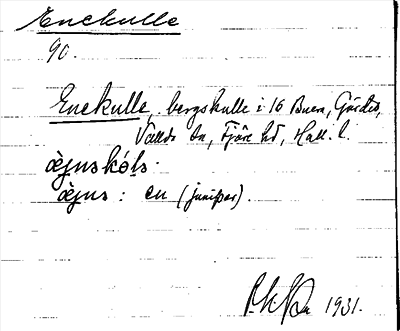 Enekulle
90.
Enekulle, bergskulle i 16 Buen, Gårda,
Vallda sn, Fjäre hd, Hall. l.
æ̀jnskóls.
æ̀jns: en (juniper).
1931.